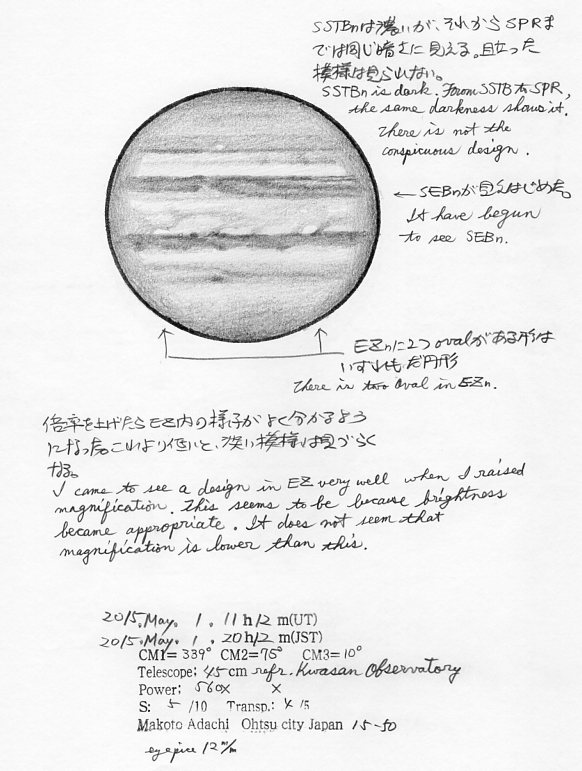 SSTBnは濃いが、それからSPRま
では同じ暗さに見える。目立った
模様は見られない。
SSTBn is dark. From SSTB to SPR,
the same darkness shows it.
There is not the
conspicuous design.
←SEBnが見えはじめた。
It have begun
to see SEBn.
EZnに2つovalがある形は
いずれも だ円形
There is two oval in EZn.
倍率を上げたらEZ内の様子がよく分かるよう
になった。これより低いと、淡い模様は見づらく
なる。
I came to see a design in EZ very well when I raised
magnification. This seems to be because brightness
became appropriate. It does not seem that
magnification is lower than this.
2015.May. 1. 11h12m(UT)
2015.May. 1. 20h12m(JST)
CM1=339° CM2=75° CM3=10°
Telescope: 45cm refr. Kwasan Observatory
Power: 560x x
S: 5 /10 Transp.: 4 /5
Makoto Adachi Ohtsu city Japan 15-50
eyepice 12m/m